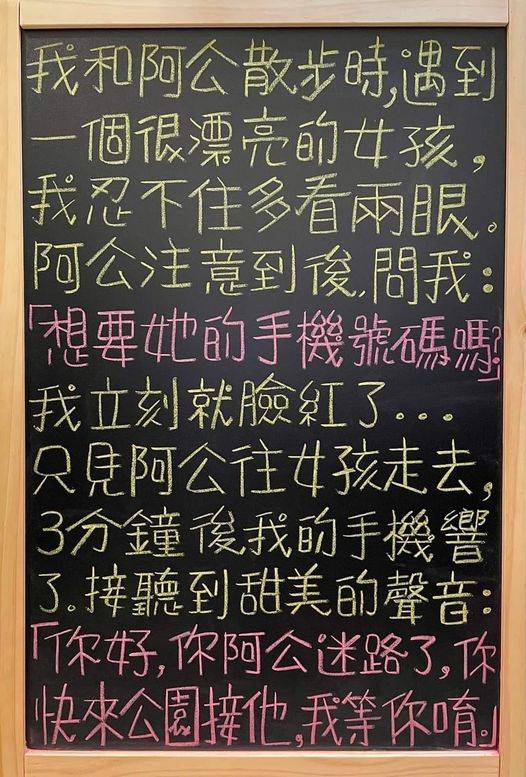 我和阿公散步時,遇到
一個很漂亮的女孩,
我忍不住多看兩眼。
阿公注意到後,問我:
「想要她的手機號碼嗎?」
我立刻就臉紅了...
只見阿公往女孩走去,
3分鐘後我的手機響
了.接聽到甜美的聲音:
「你好,你阿公迷路了,你
快來公園接他,我等你唷.」